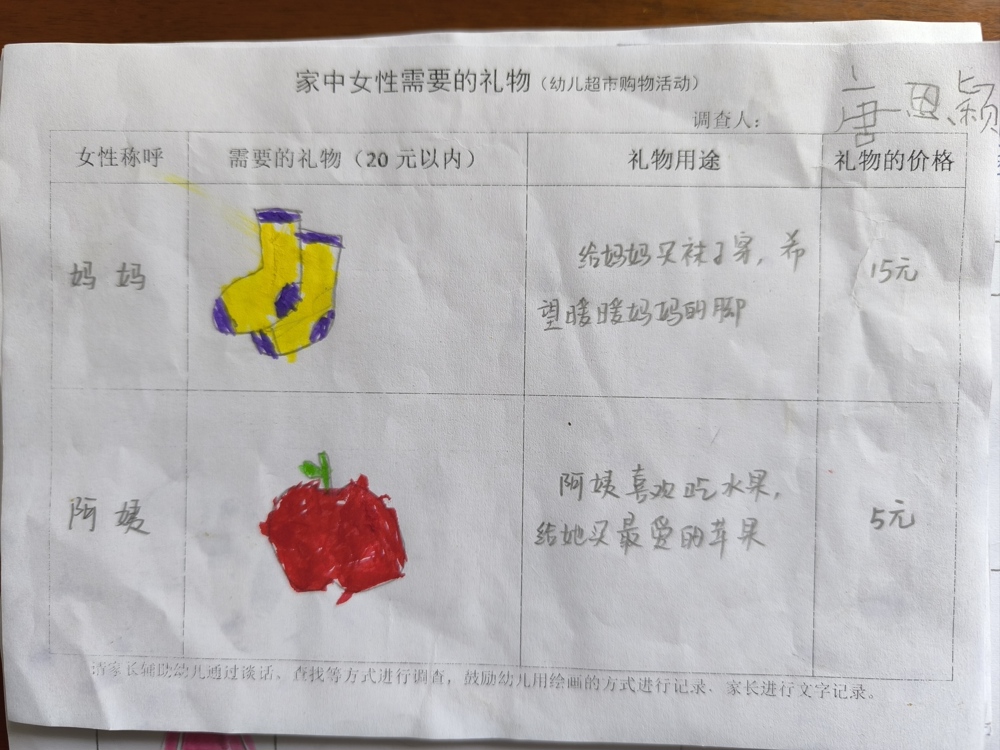 家中女性需要的礼物（幼儿超市购物活动）
调查人：
唐思颖
女性称呼 需要的礼物（20 元以内） 礼物用途 礼物的价格
妈 妈
给妈妈买袜子穿，希
望暖暖妈妈的脚
15元
阿 姨
阿姨喜欢吃水果，
给她买最爱的苹果
5元
请家长辅助幼儿通过谈话、查找等方式进行调查，鼓励幼儿用绘画的方式进行记录、家长进行文字记录。